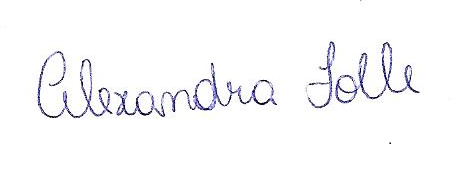 Alexandra Folle